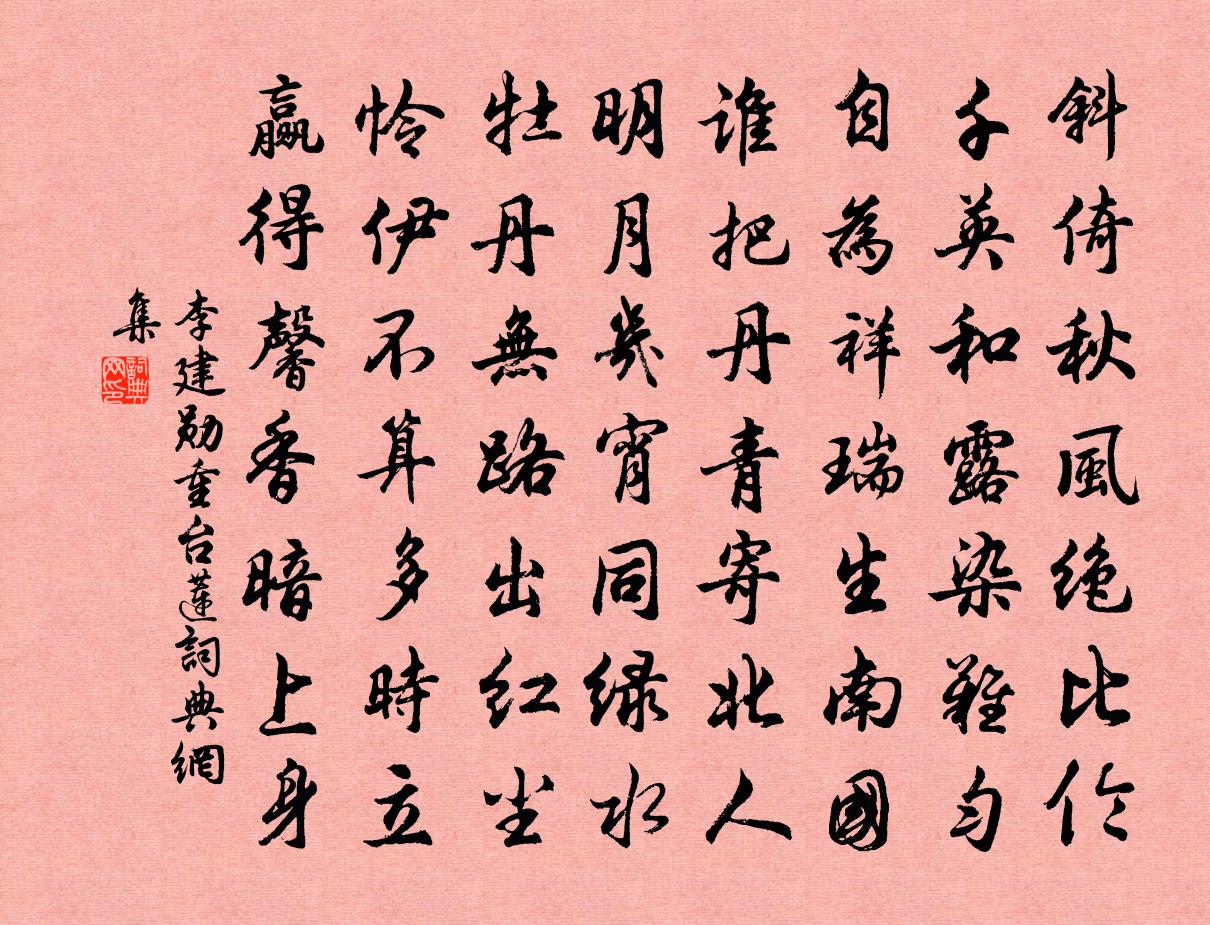 斜倚秋風絶比倫
千英和露染難勻
自為祥瑞生南國
誰把丹青寄北人
明月幾宵同緑水
牡丹無路出紅塵
怜伊不算多時立
贏得馨香暗上身
李建勋重台蓮詞典網
集
詞典
网印